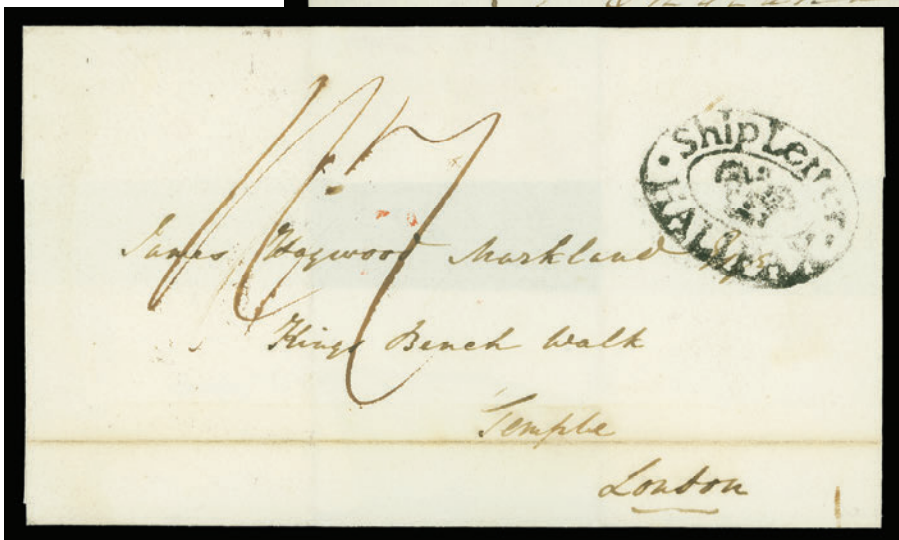 Ship Letter
HALIFAX
1/7
James Heywood Markland Esqre
Kings Bench Walk
Temple
London